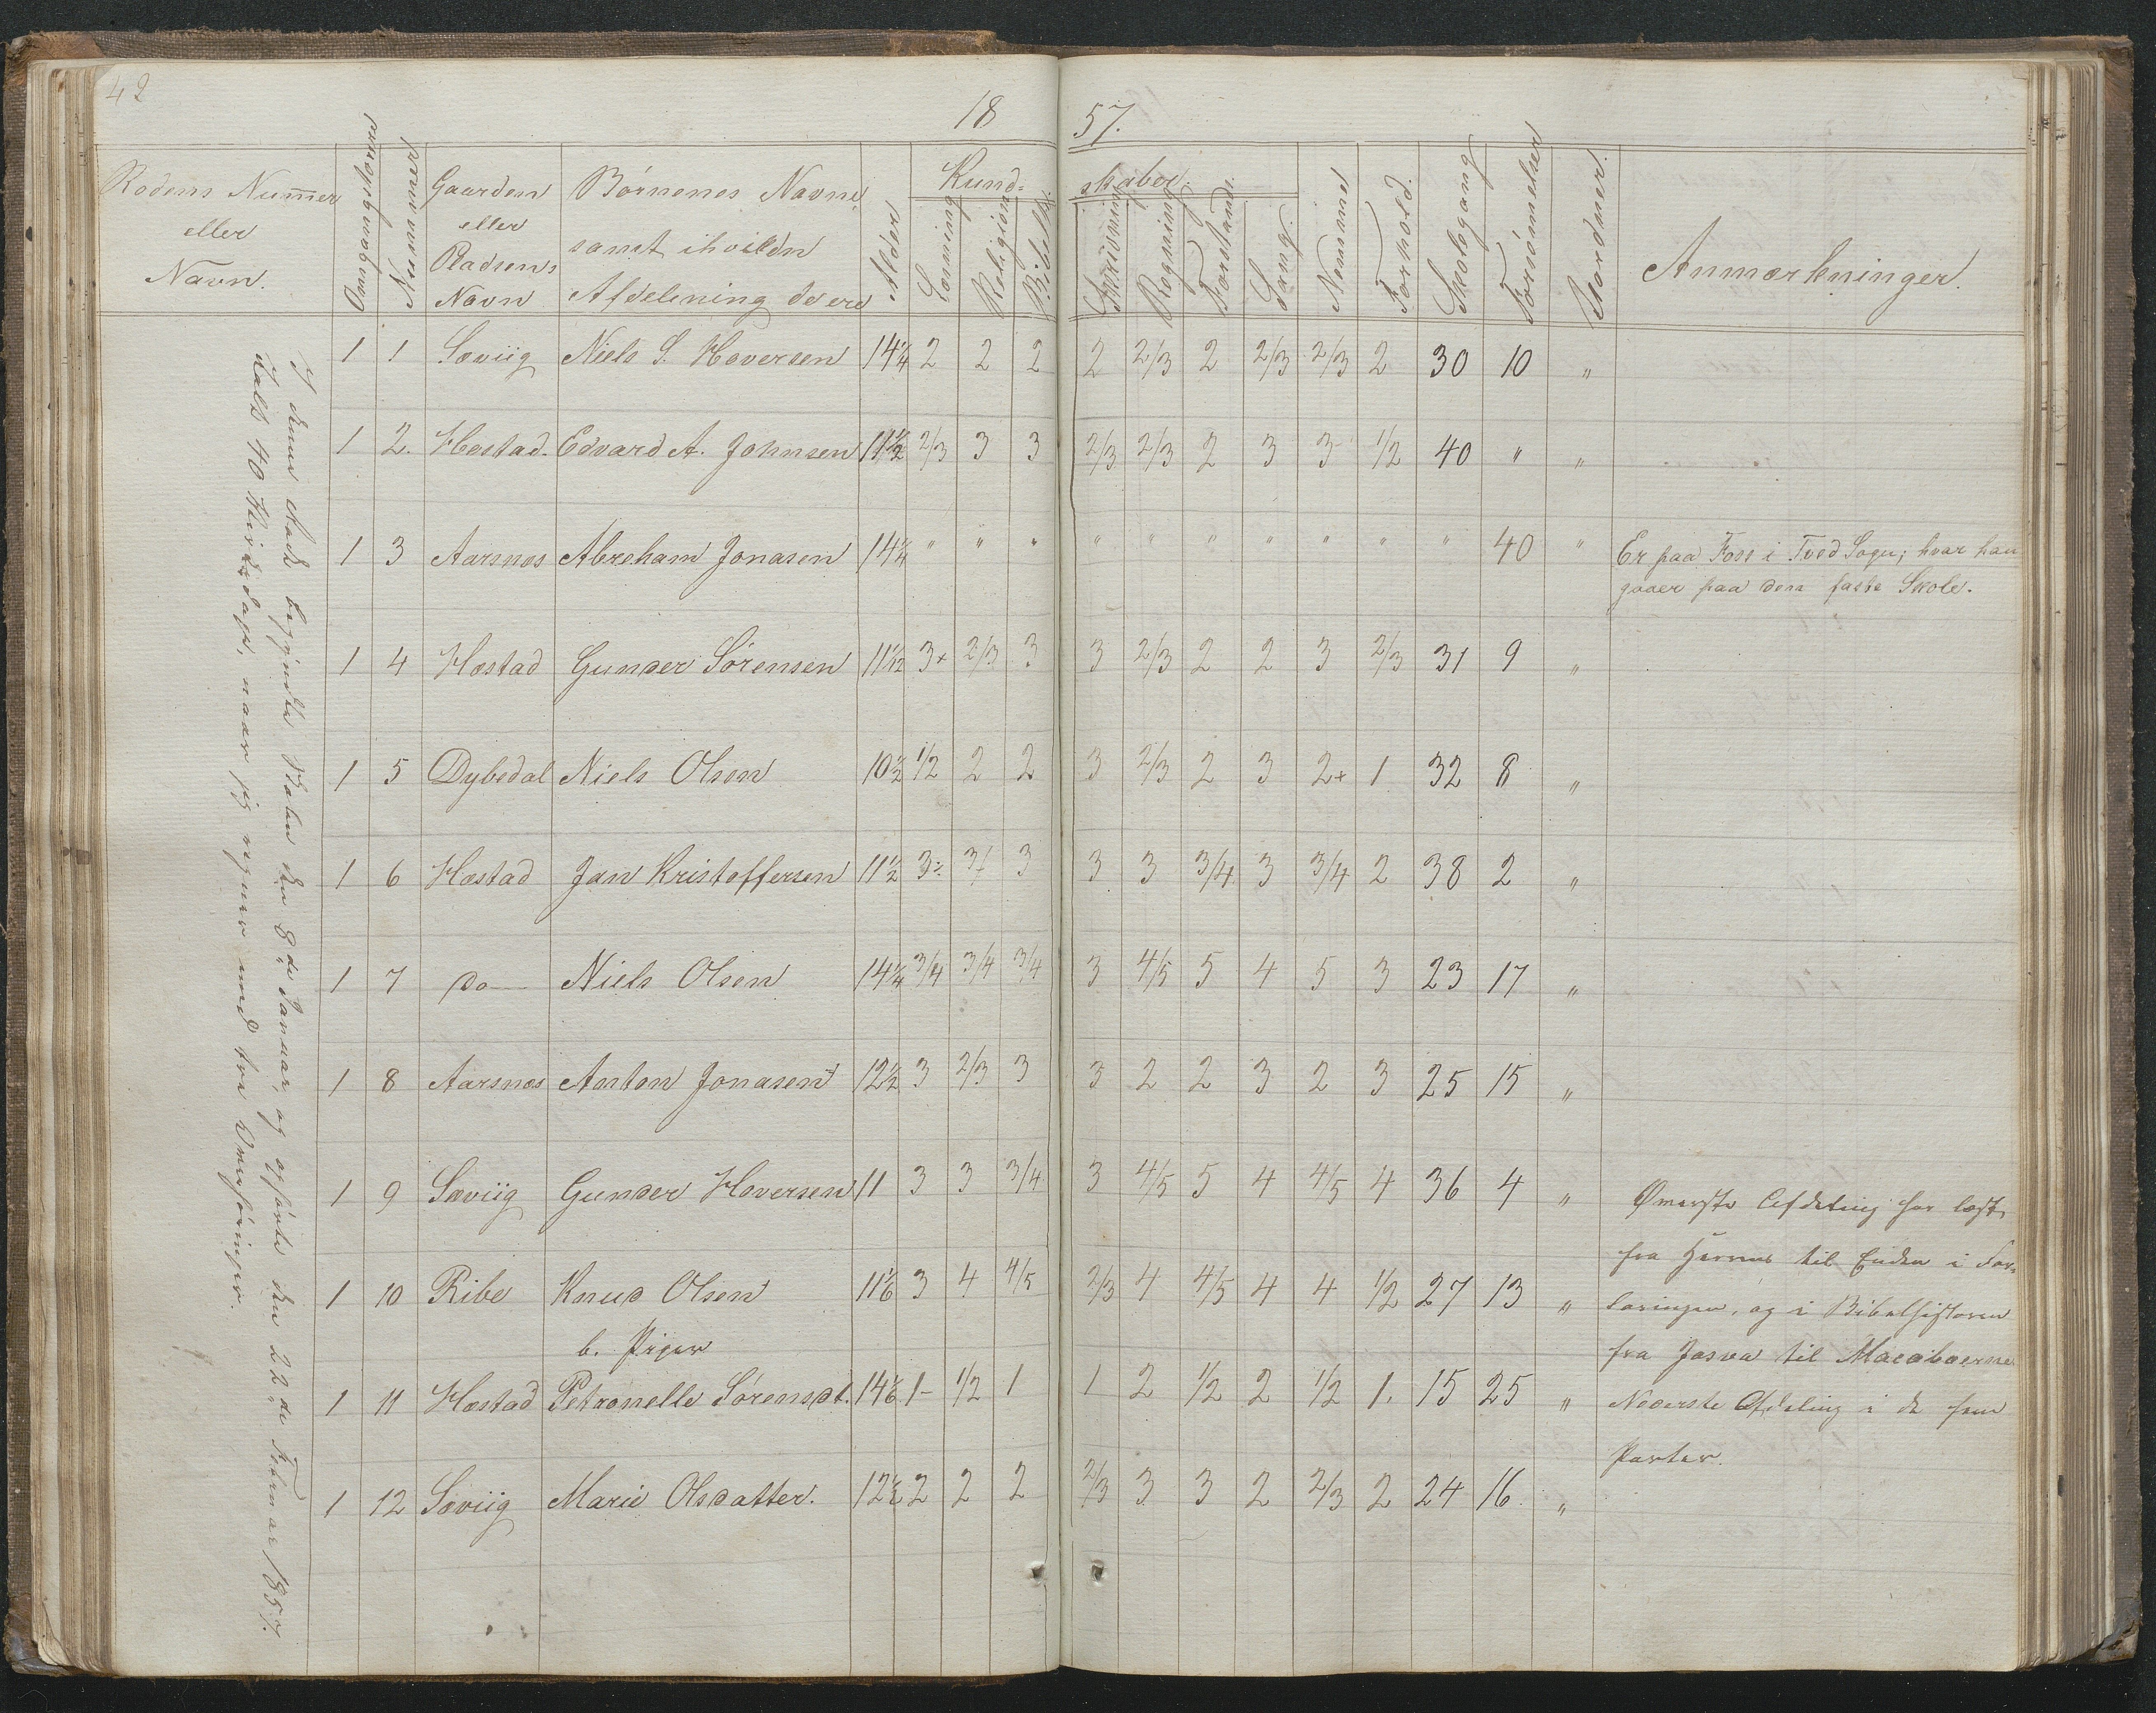 42
18 57.
Rodens Nummer
eller
Navn.
Omgangstornes
Nummer
Gaarden
eller
Pladsens
Navn
Børnenes Navne
samt ihvilkn
Afdelening de ere
Alder
Kund=
skaber.
Læsning
Religion
Bibelh.
Skrivning
Regning
Forstand.
Sang.
Nemme
Forhold.
Skolegang
Forsømmelser
Uordner.
Anmærkninger.
I denne Rode begyndte Skolen den 8de Januar, og opførte den 22de Februar 1857.
Holdt 40 Skoledage, naar jeg regner med tre Omføringer.
1 1 Sæviig Niels S. Haversen 14 1/4 2 2 2 2 2/3 2 2/3 2/3 2 30 10 "
1 2. Hæstad. Edvard A. Johnsen 11 1/2 2/3 3 3 2/3 2/3 2 3 3 1/2 40 " "
1 3 Aarsnæs Abreham Jonasen 14 1/4 " " " " " " " " " " 40 " Er paa Foss i Tved Sogn; hvor han
gaaer paa den faste Skole.
1 4 Hæstad Gunder Sørensen 11 1/12 3+ 2/3 3 3 2/3 2 2 3 2/3 31 9 "
1 5 Dybedal Niels Olsen 10 1/2 1/2 2 2 3 2/3 2 3 2+ 1 32 8 "
1 6 Hæstad Jan Kristoffersen 11 1/2 3÷ 3/4 3 3 3 3/4 3 3/4 2 38 2 "
1 7 do— Niels Olsen 14 1/4 3/4 3/4 3/4 3 4/5 5 4 5 3 23 17 "
1 8 Aarsnæs Anton Jonasen 12 1/2 3 2/3 3 3 2 2 3 2 3 25 15 "
1 9 Sæviig Gunder Haversen 11 3 3 3/4 3 4/5 5 4 4/5 4 36 4 " Øverste Afdeling har læst
fra Herrens til Enden i For=
1 10 Ribe Knud Olsen 11 1/6 3 4 4/5 2/3 4 4/5 4 4 1/2 27 13 " laringen, og i Bibelhistorien
b. Piger
fra Josva til Macabæerne
1 11 Hæstad Petronelle Sørensdt. 14 1/6 1- 1/2 1 1 2 1/2 2 1/2 1. 15 25 " Nederste Afdeling i de fem
Parter.
1 12 Sæviig Marie Olsdatter. 12 1/2 2 2 2 2/3 3 3 2 2/3 2 24 16 "